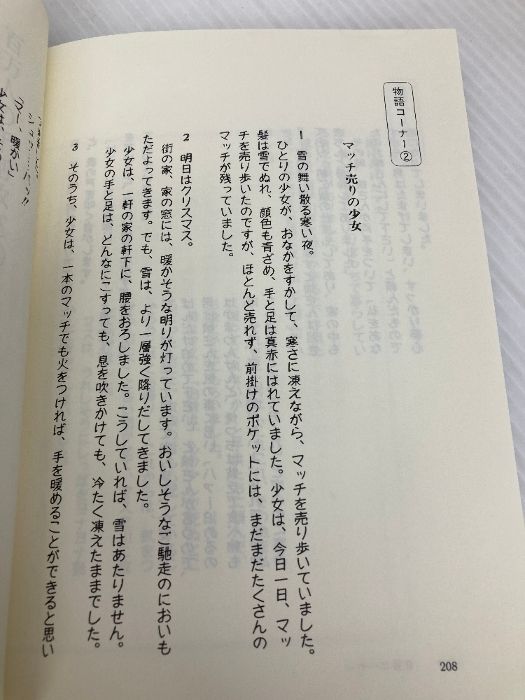 物語コーナー②
マッチ売りの少女
1 雪の舞い散る寒い夜。
ひとりの少女が、おなかをすかして、寒さに凍えながら、マッチを売り歩いていました。
髪は雪でぬれ、顔色も青ざめ、手と足は真赤にはれていました。少女は、今日一日、マッ
チを売り歩いたのですが、ほとんど売れず、前掛けのポケットには、まだまだたくさんの
マッチが残っていました。
2 明日はクリスマス。
街の家、家の窓には、暖かそうな明りが灯っています。おいしそうなご馳走のにおいも
ただよってきます。でも、雪は、より一層強く降りだしてきました。
少女は、一軒の家の軒下に、腰をおろしました。こうしていれば、雪はあたりません。
少女の手と足は、どんなにこすっても、息を吹きかけても、冷たく凍えたままでした。
3 そのうち、少女は、一本のマッチでも火をつければ、手を暖めることができると思い
シュッ
「ラー、暖かい」
少女は、
208